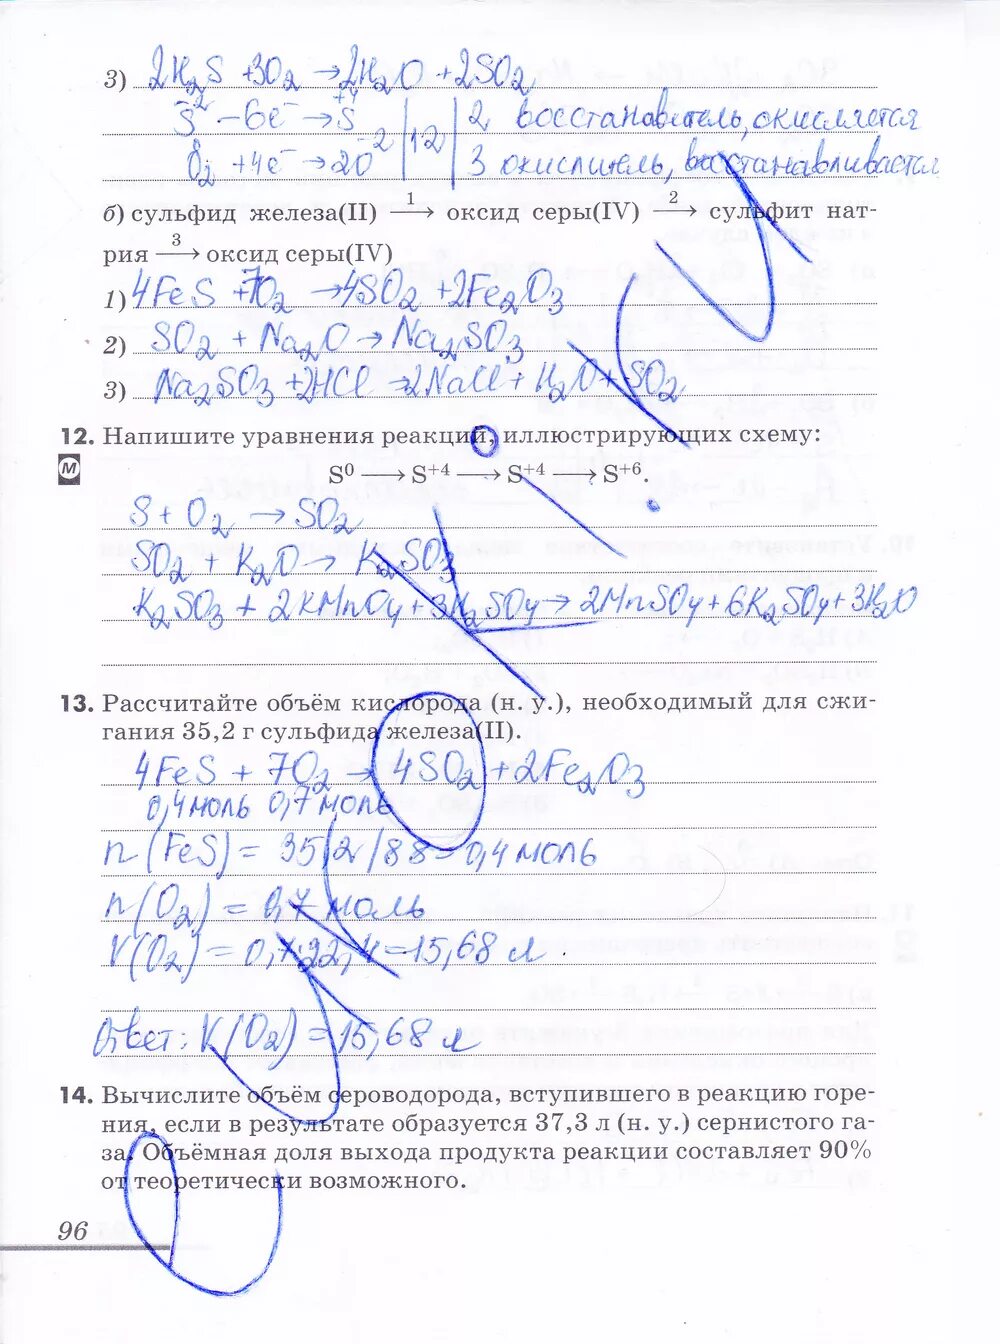 3) 2H₂S + 3O₂ → 2H₂O + 2SO₂
S⁻² − 6e⁻ → S⁺⁴ | 12 | 2 восстановитель, окисляется
O₂ + 4e⁻ → 2O⁻² | 3 окислитель, восстанавливается
б) сульфид железа(II) —1→ оксид серы(IV) —2→ сульфит нат-
рия —3→ оксид серы(IV)
1) 4FeS + 7O₂ → 4SO₂ + 2Fe₂O₃
2) SO₂ + Na₂O → Na₂SO₃
3) Na₂SO₃ + 2HCl → 2NaCl + H₂O + SO₂
12. Напишите уравнения реакций, иллюстрирующих схему:
М S⁰ → S⁺⁴ → S⁺⁴ → S⁺⁶.
S + O₂ → SO₂
SO₂ + K₂O → K₂SO₃
K₂SO₃ + 2KMnO₄ + 3H₂SO₄ → 2MnSO₄ + 6K₂SO₄ + 3H₂O
13. Рассчитайте объём кислорода (н. у.), необходимый для сжи-
гания 35,2 г сульфида железа(II).
4FeS + 7O₂ → 4SO₂ + 2Fe₂O₃
0,4 моль 0,7 моль
n(FeS) = 35,2/88 = 0,4 моль
n(O₂) = 0,7 моль
V(O₂) = 0,7·22,4 = 15,68 л.
Ответ: V(O₂) = 15,68 л
14. Вычислите объём сероводорода, вступившего в реакцию горе-
ния, если в результате образуется 37,3 л (н. у.) сернистого га-
за. Объёмная доля выхода продукта реакции составляет 90%
от теоретически возможного.
96